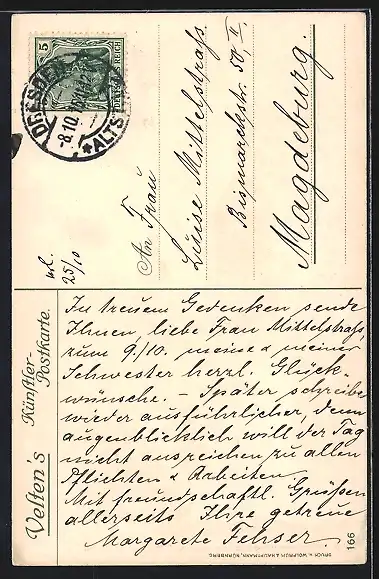 5
DEUTSCHES REICH
DRESDEN
8.10.
*ALTST.
An Frau
Luise Mittelstraß.
Bismarckstr. 50, II.
Magdeburg.
25/10
In treuem Gedenken sende
Ihnen, liebe Frau Mittelstraß,
zum 9./10. meine & meiner
Schwester herzl. Glück-
wünsche. – Später schreibe
wieder ausführlicher, denn
augenblicklich will der Tag
nicht ausreichen zu allen
Pflichten & Arbeiten.
Mit freundschaftl. Grüßen
allerseits Ihre getreue
Margarete Fehser.
Velten's Künstler-
Postkarte.
DRUCK V. WOLFRUM & HAUPTMANN, NÜRNBERG.
166